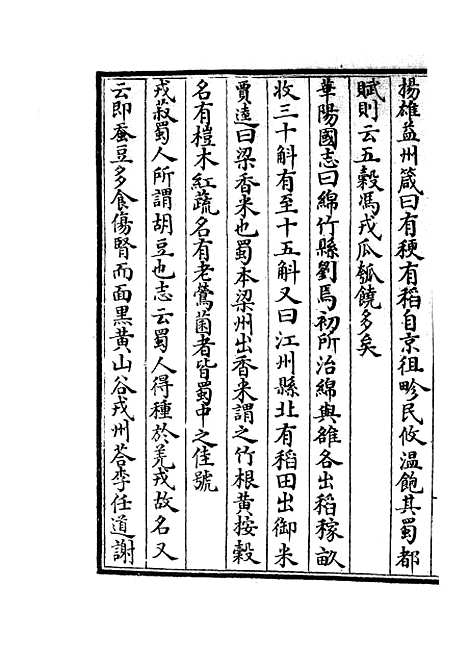 揚雄益州箴曰有稉有稻自京徂畛民攸溫飽其蜀都
賦則云五穀馮戎瓜瓠饒多矣
華陽國志曰綿竹縣劉焉初所治綿與雒各出稻稼畝
收三十斛有至十五斛又曰江州縣北有稻田出御米
賈逵曰梁香米也蜀本梁州出香米謂之竹根黃按穀
名有榿木紅蔬名有老鶯菌者皆蜀中之佳號
戎菽蜀人所謂胡豆也志云蜀人得種於羌戎故名又
云即蚕豆多食傷腎而面黑黃山谷戎州荅李任道謝